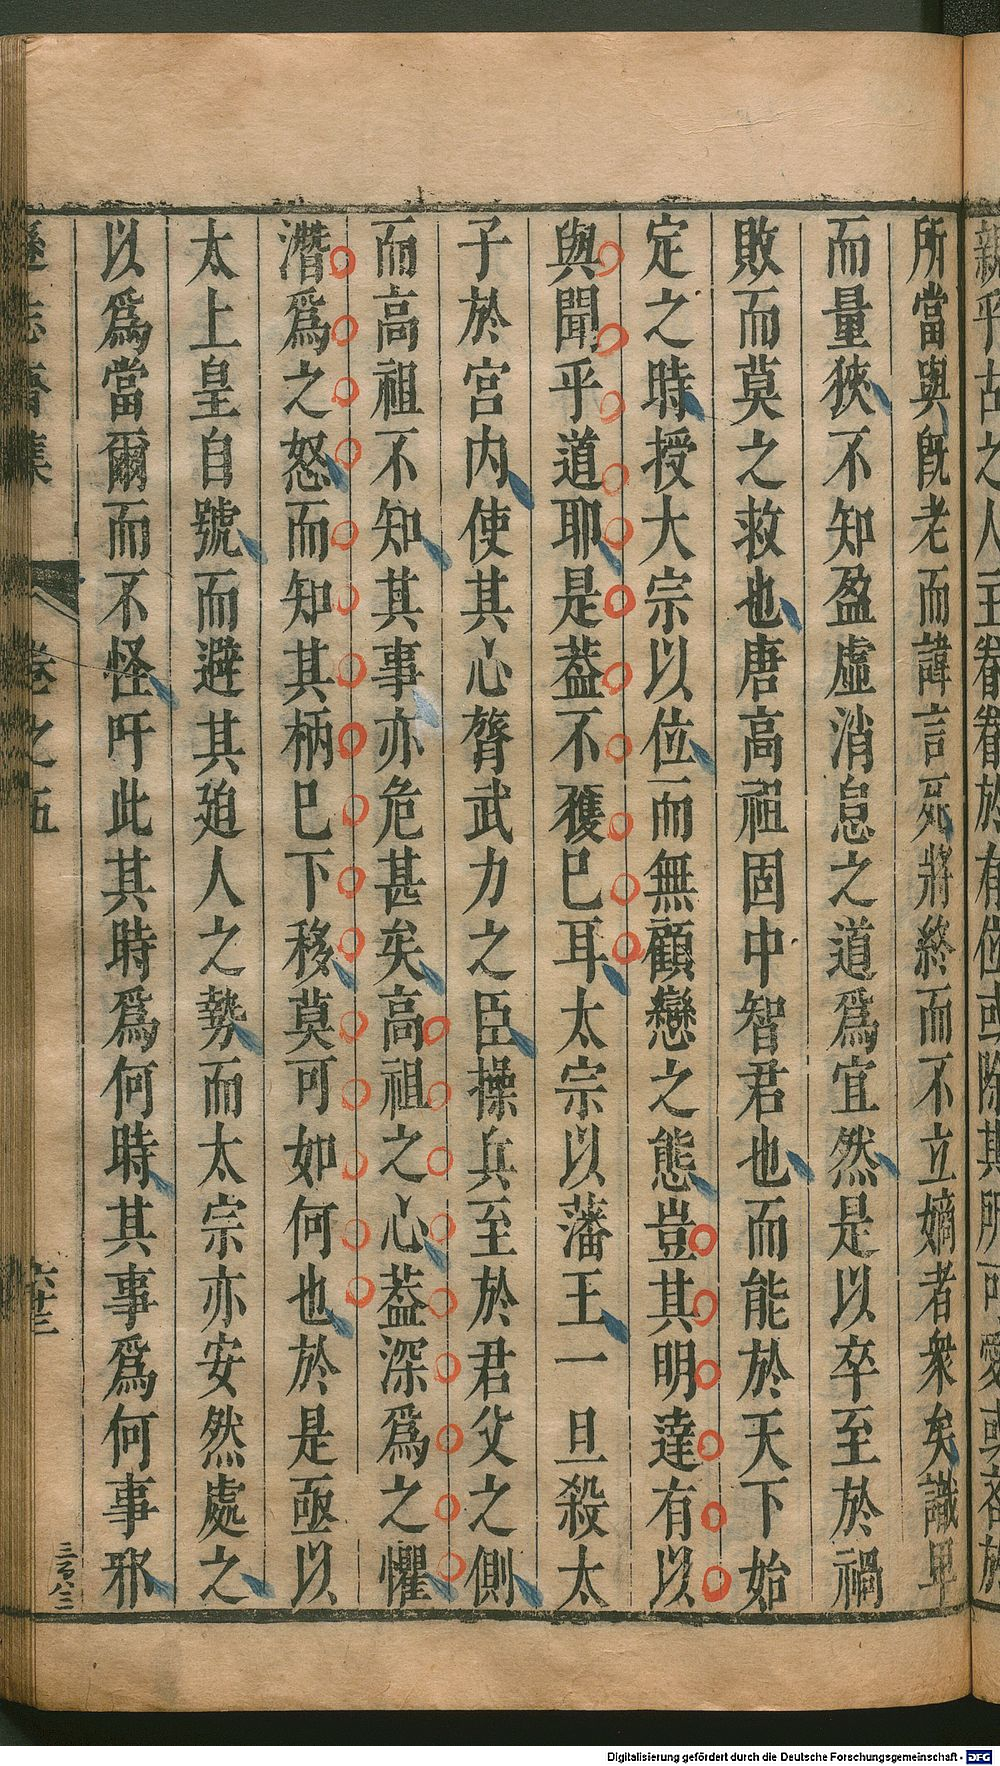 親乎古之人主眷眷於有位或除其所可愛
所當與既老而諱言死將終而不立嫡者衆矣識卑
而量狹不知盈虛消息之道爲宜然是以卒至於禍
敗而莫之救也唐高祖固中智君也而能於天下始
定之時授大宗以位而無顧戀之態豈其明達有以
與聞乎道耶是葢不獲巳耳太宗以藩王一旦殺太
子於宮内使其心膂武力之臣操兵至於君父之側
而高祖不知其事亦危甚矣高祖之心葢深爲之懼
潛爲之怒而知其柄巳下移莫可如何也於是亟以
太上皇自號而避其廹人之勢而太宗亦安然處之
以爲當爾而不怪吁此其時爲何時其事爲何事邪
遜志齋集 卷之五 六十三
三百八三
Digitalisierung gefördert durch die Deutsche Forschungsgemeinschaft - DFG